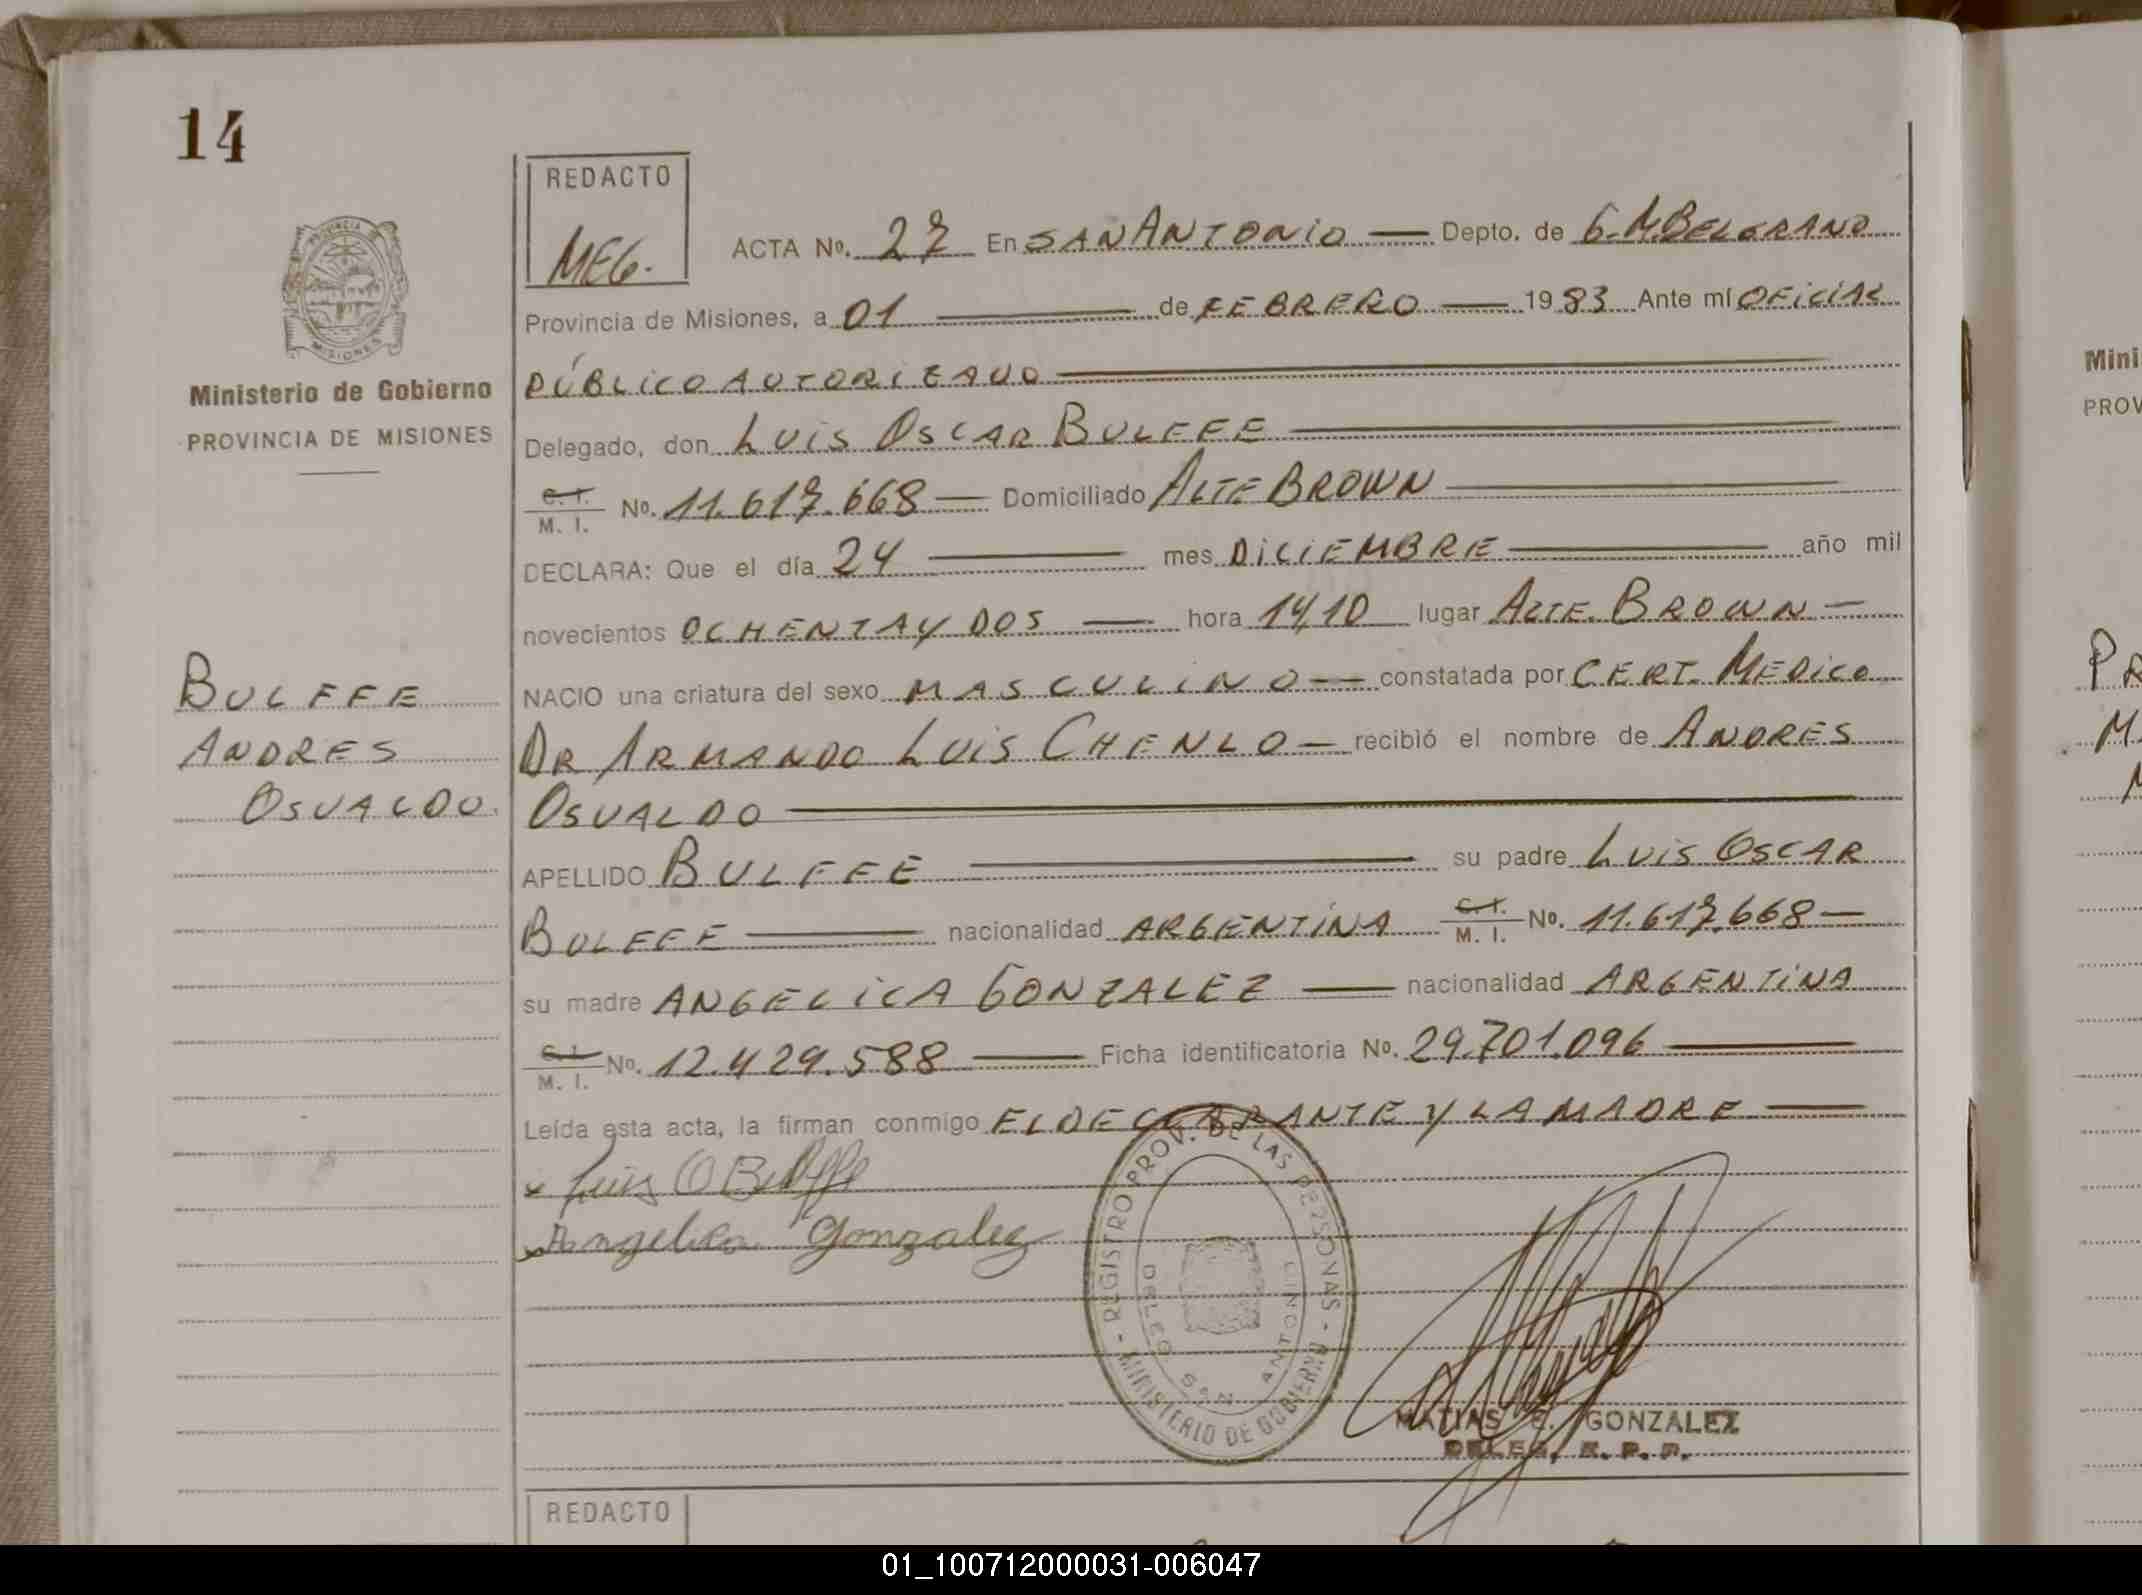 14
REDACTO
MEG.
ACTA Nº. 27 En SAN ANTONIO — Depto. de G. M. BELGRANO
Provincia de Misiones, a 01 — de FEBRERO — 1983 Ante mí OFICIAL
PÚBLICO AUTORIZADO —
Ministerio de Gobierno
PROVINCIA DE MISIONES
Delegado, don LUIS OSCAR BULFFE —
C. I. / M. I. Nº. 11.617.668 — Domiciliado ALTE BROWN —
DECLARA: Que el día 24 — mes DICIEMBRE — año mil
novecientos OCHENTA Y DOS — hora 14,10 lugar ALTE. BROWN —
BULFFE
ANDRES
OSVALDO.
NACIO una criatura del sexo MASCULINO — constatada por CERT. MEDICO
DR ARMANDO LUIS CHENLO — recibió el nombre de ANDRES
OSVALDO —
APELLIDO BULFFE — su padre LUIS OSCAR
BULFFE — nacionalidad ARGENTINA C. I. / M. I. Nº. 11.617.668 —
su madre ANGELICA GONZALEZ — nacionalidad ARGENTINA
C. I. / M. I. Nº. 12.429.588 — Ficha identificatoria Nº. 29.701.096 —
Leída esta acta, la firman conmigo EL DECLARANTE Y LA MADRE —
x Luis O Bulffe
x Angelica Gonzalez
- REGISTRO PROV. DE LAS PERSONAS - MINISTERIO DE GOBIERNO
SAN ANTONIO
MATIAS E. GONZALEZ
DELEG. R. P. P.
REDACTO
Mini
PROV
PR
M
01_100712000031-006047